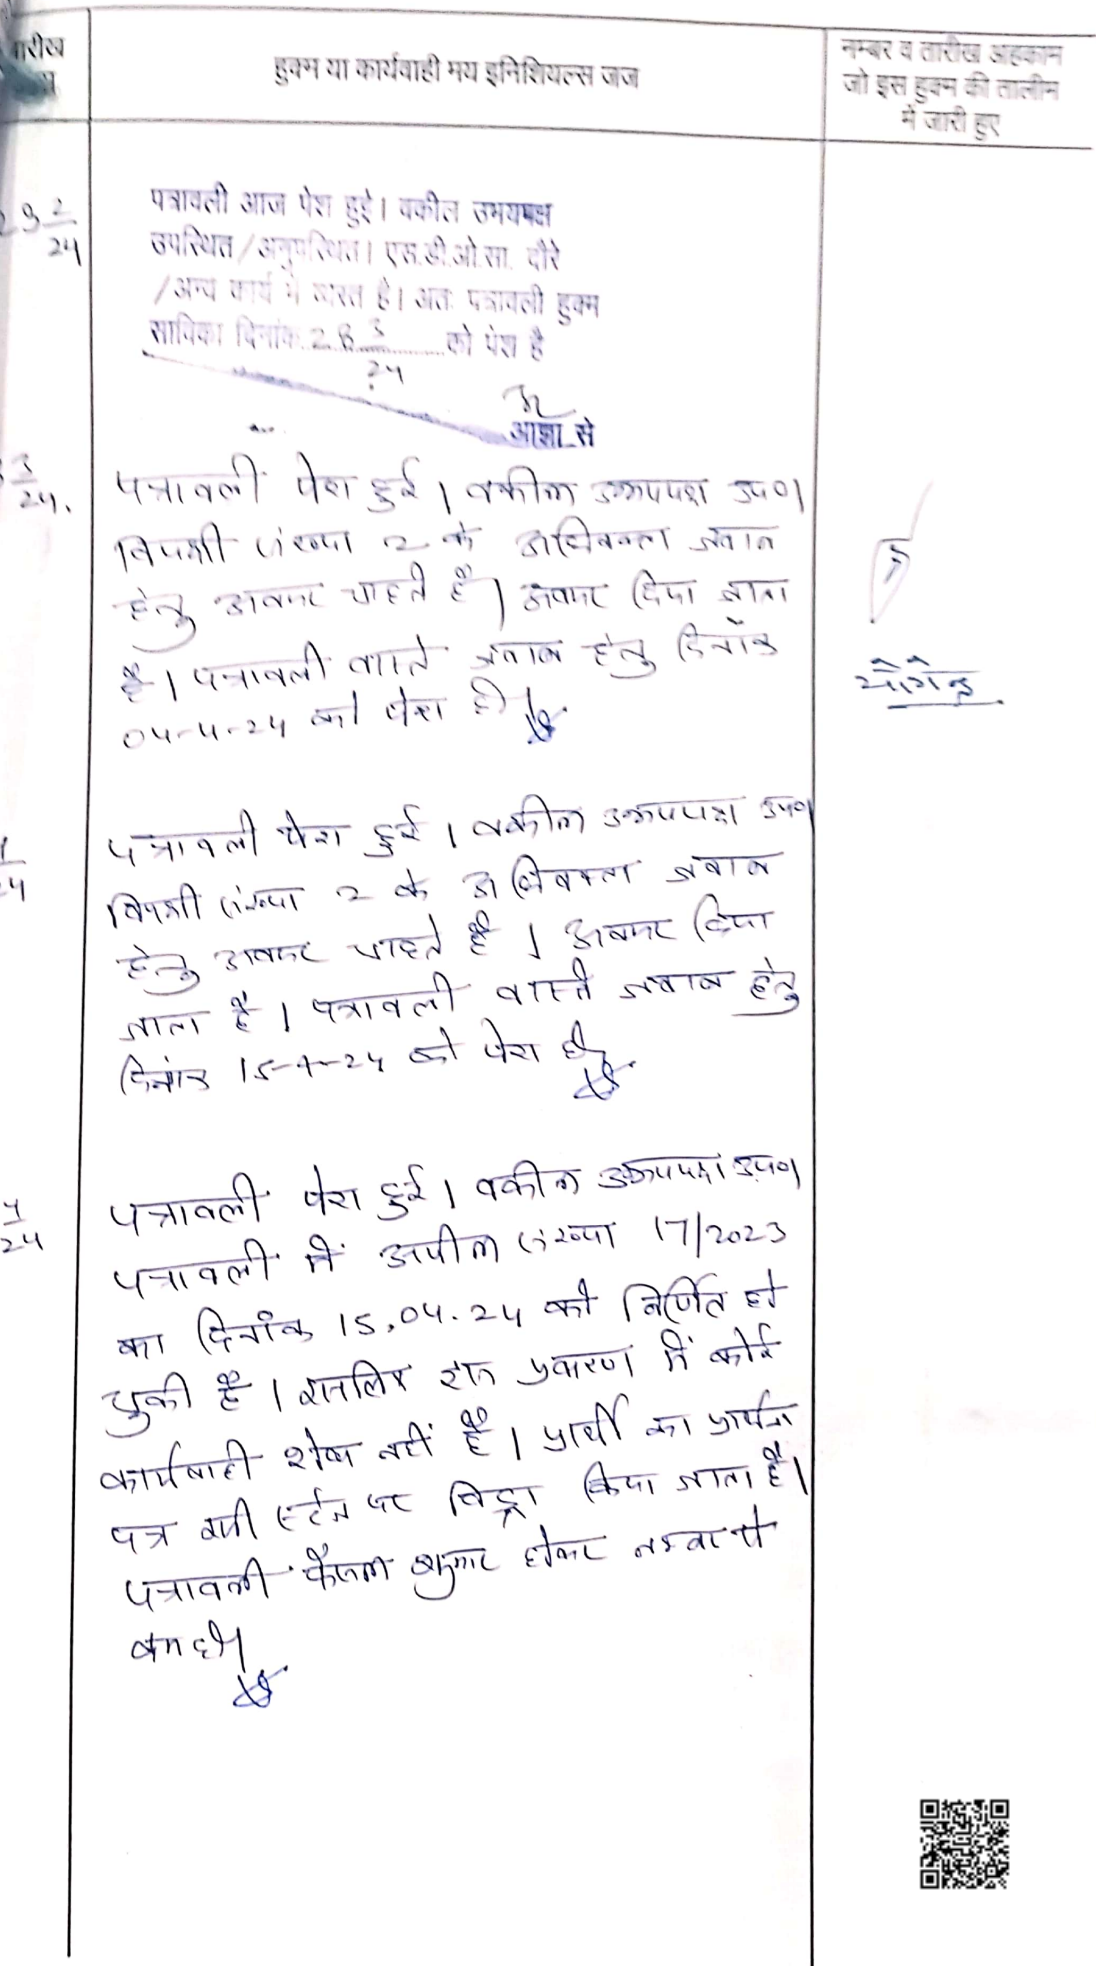 तारीख
हुक्म या कार्यवाही मय इनिशियल्स जज
नम्बर व तारीख अहकाम
जो इस हुक्म की तालीम
में जारी हुए
29 2/24
पत्रावली आज पेश हुई। वकील उभयपक्ष
उपस्थित/अनुपस्थित। एस.डी.ओ.सा. दौरे
/अन्य कार्य में व्यस्त है। अतः पत्रावली हुक्म
साविका दिनांक 28 3/24 को पेश है
आज्ञा से
3/24.
पत्रावली पेश हुई। वकील उभयपक्ष उप०।
विपक्षी संख्या 2 के अधिवक्ता जवाब
हेतु अवसर चाहते है। अवसर दिया जाता
है। पत्रावली वास्ते जवाब हेतु दिनाँक
04-4-24 को पेश हो।
4/24
पत्रावली पेश हुई। वकील उभयपक्ष उप०
विपक्षी संख्या 2 के अधिवक्ता जवाब
हेतु अवसर चाहते है। अवसर दिया
जाता है। पत्रावली वास्ते जवाब हेतु
दिनांक 15-4-24 को पेश हो
4/24
पत्रावली पेश हुई। वकील उभयपक्ष उप०।
पत्रावली में अपील संख्या 17/2023
का दिनांक 15.04.24 को निर्णित हो
चुकी है। इसलिए इस प्रकरण में कोई
कार्यवाही शेष नहीं है। प्रार्थी का प्रार्थना
पत्र इसी स्टेज पर विड्रा किया जाता है।
पत्रावली फैसल शुमार होकर नम्बर से
कम हो।